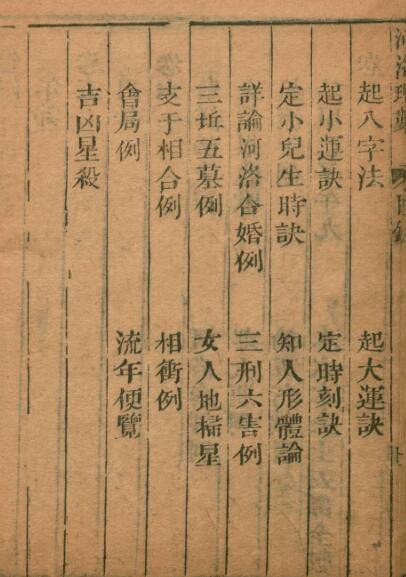 起八字法　起大運訣
起小運訣　定時刻訣
定小兒生時訣　知人形體論
詳論河洛合婚例　三刑六害例
三坵五墓例　女人地掃星
支干相合例　相衝例
會局例　流年便覽
吉凶星殺